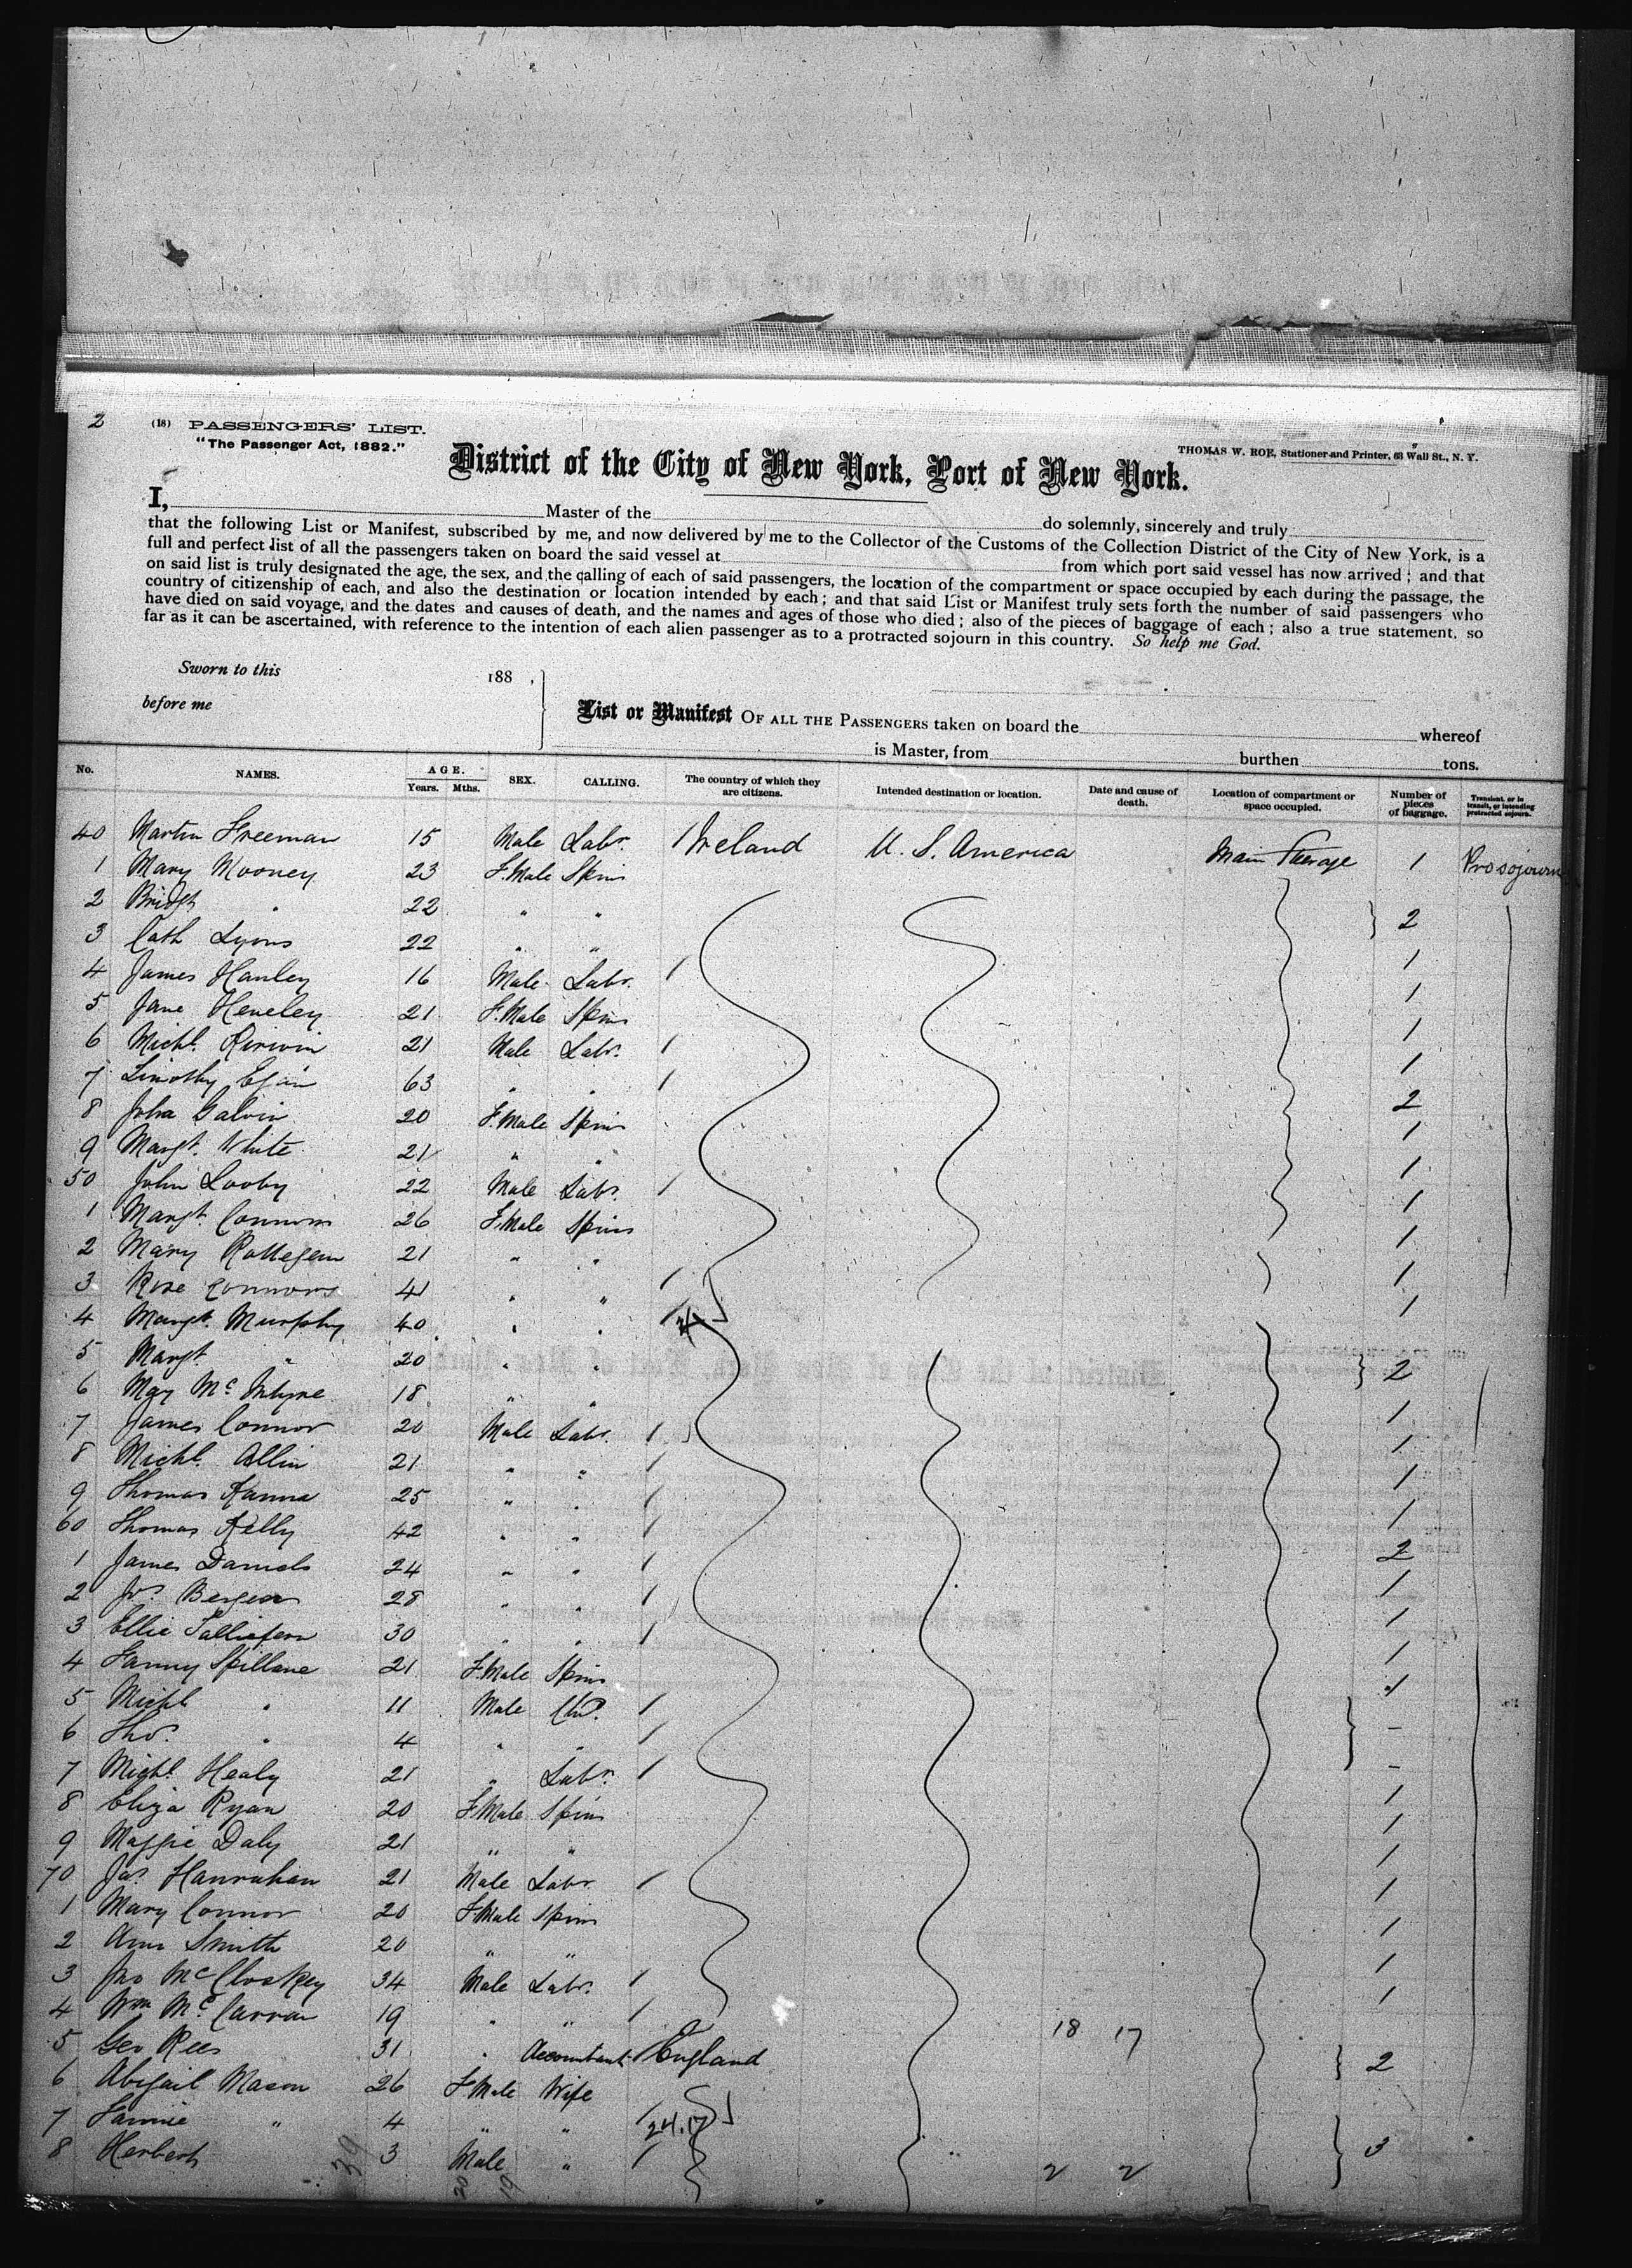 2
(18) PASSENGERS' LIST.
"The Passenger Act, 1882."
THOMAS W. ROE, Stationer and Printer, 63 Wall St., N. Y.
District of the City of New York, Port of New York.
I, Master of the do solemnly, sincerely and truly
that the following List or Manifest, subscribed by me, and now delivered by me to the Collector of the Customs of the Collection District of the City of New York, is a
full and perfect list of all the passengers taken on board the said vessel at from which port said vessel has now arrived; and that
on said list is truly designated the age, the sex, and the calling of each of said passengers, the location of the compartment or space occupied by each during the passage, the
country of citizenship of each, and also the destination or location intended by each; and that said List or Manifest truly sets forth the number of said passengers who
have died on said voyage, and the dates and causes of death, and the names and ages of those who died; also of the pieces of baggage of each; also a true statement, so
far as it can be ascertained, with reference to the intention of each alien passenger as to a protracted sojourn in this country. So help me God.
Sworn to this 188 ,
before me
List or Manifest OF ALL THE PASSENGERS taken on board the whereof
is Master, from burthen tons.
No. NAMES. AGE. Years. Mths. SEX. CALLING. The country of which they are citizens. Intended destination or location. Date and cause of death. Location of compartment or space occupied. Number of pieces of baggage. Transient, or in transit, or intending protracted sojourn.
40 Martin Freeman 15 Male Labr. / Ireland U. S. America Main Steerage 1 Pro sojourn
1 Mary Mooney 23 F.Male Spins
2 Bridgt " 22 " " 2
3 Cath Lyons 22 " " 1
4 James Hanley 16 Male Labr. / 1
5 Jane Heneley 21 F.Male Spins 1
6 Michl. Kirwin 21 Male Labr. / 1
7 Timothy Egan 63 " " / 2
8 Julia Galvin 20 F.Male Spins 1
9 Margt. White 21 " " 1
50 John Looby 22 Male Labr. / 1
1 Margt. Connors 26 F.Male Spins 1
2 Mary 21 " " 1
3 Rose Connors 41 " " / 1
4 Margt. Murphy 40 " " /
5 Margt. " 20 " " 2
6 May McIntyre 18 " " 1
7 James Connor 20 Male Labr. / 1
8 Michl. Allin 21 " " / 1
9 Thomas 25 " " / 1
60 Thomas Kelly 42 " " / 2
1 James Daniels 24 " " / 1
2 Jos. 28 " " / 1
3 Ellie 30 " " / 1
4 Fanny Spillane 21 F.Male Spins 1
5 Michl " 11 Male Chd. /
6 Thos. " 4 " " / -
7 Michl. Healy 21 " Labr. / -
8 Eliza Ryan 20 F.Male Spins 1
9 Maggie Daly 21 " " 1
70 Jas. Hanrahan 21 Male Labr. / 1
1 Mary Connor 20 F.Male Spins 1
2 Ann Smith 20 " " 1
3 Jno McCloskey 34 Male Labr. / 1
4 Wm McCarron 19 " " / 1
18 17
5 Geo Rees 31 " Accountant / England 2
6 Abigail Mason 26 F.Male Wife
7 Fannie " 4 " " / 24.17
8 Herbert 3 Male " / 3
2 2
39
20 19